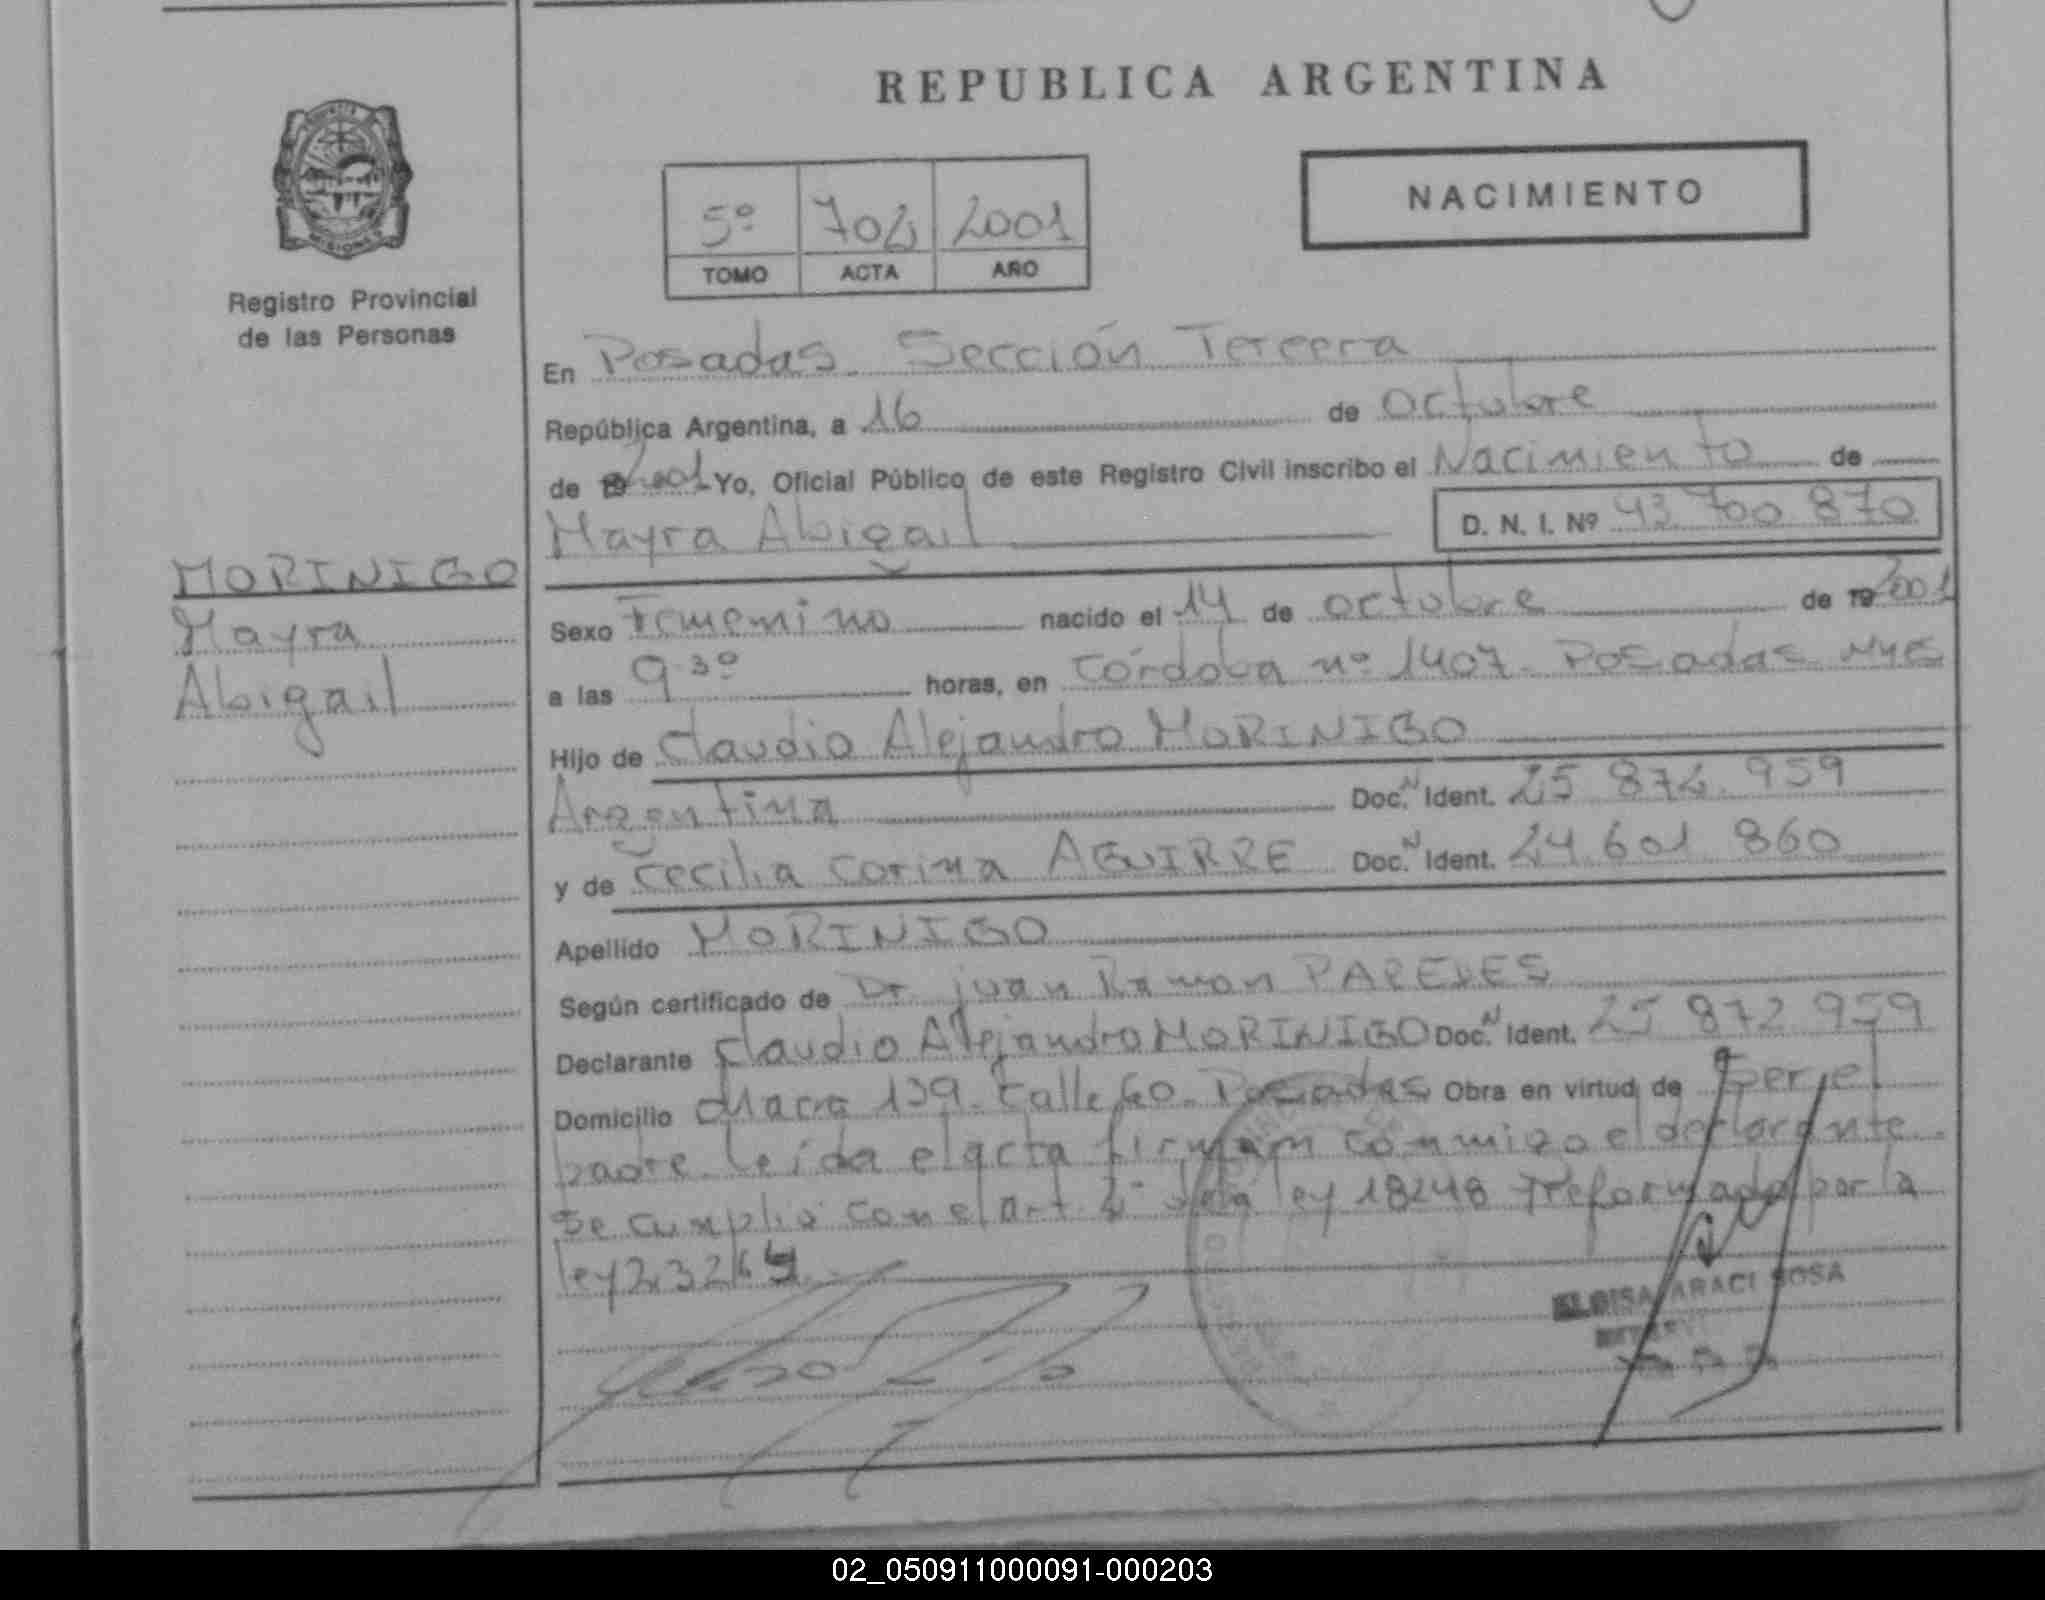 REPUBLICA ARGENTINA
NACIMIENTO
5º 702 2001
TOMO ACTA AÑO
MISIONES
Registro Provincial
de las Personas
MORINIGO
Mayra
Abigail
En Posadas. Sección Tercera
República Argentina, a 16 de octubre
de 2001 Yo, Oficial Público de este Registro Civil inscribo el Nacimiento de
Mayra Abigail D. N. I. Nº 43 700 870
Sexo Femenino nacido el 14 de octubre de 2001
a las 9.30 horas, en Córdoba nº 1407. Posadas Mnes
Hijo de Claudio Alejandro MORINIGO
Argentina Doc. N Ident. 25 872 959
y de Cecilia Corina AGUIRRE Doc. N Ident. 24 601 860
Apellido MORINIGO
Según certificado de Dr. Juan Ramon PAREDES
Declarante Claudio Alejandro MORINIGO Doc. N Ident. 25 872 959
Domicilio Chacra 139. Calle 60. Posadas Obra en virtud de ser el
padre. Leída el acta firman conmigo el declarante
Se cumplió con el art. 2º de la ley 18248 reformado por la
ley 23264
ELOISA ARACI SOSA
02_050911000091-000203